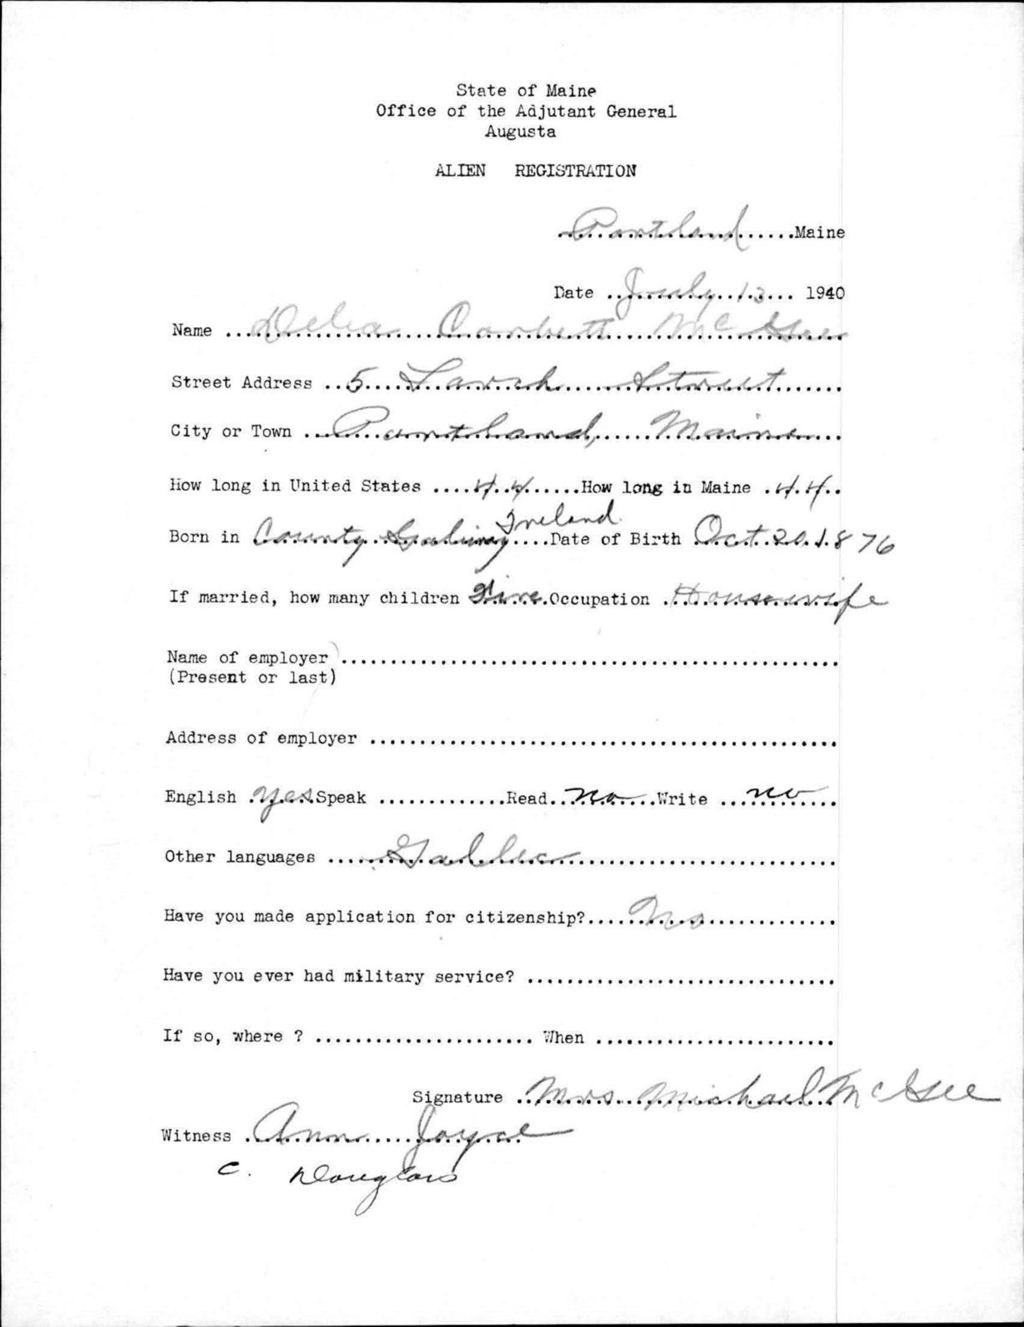 State of Maine
Office of the Adjutant General
Augusta
ALIEN REGISTRATION
Portland Maine
Date July 13 1940
Name Delia Corbett McGee
Street Address 5 Larch Street
City or Town Portland, Maine
How long in United States 44 How long in Maine 44
Born in County Galway Ireland Date of Birth Oct. 20. 1876
If married, how many children Five Occupation Housewife
Name of employer
(Present or last)
Address of employer
English yes Speak Read no Write no
Other languages Gallic
Have you made application for citizenship? No
Have you ever had military service?
If so, where ? When
Signature Mrs. Michael McGee
Witness Ann Joyce
C. Douglass